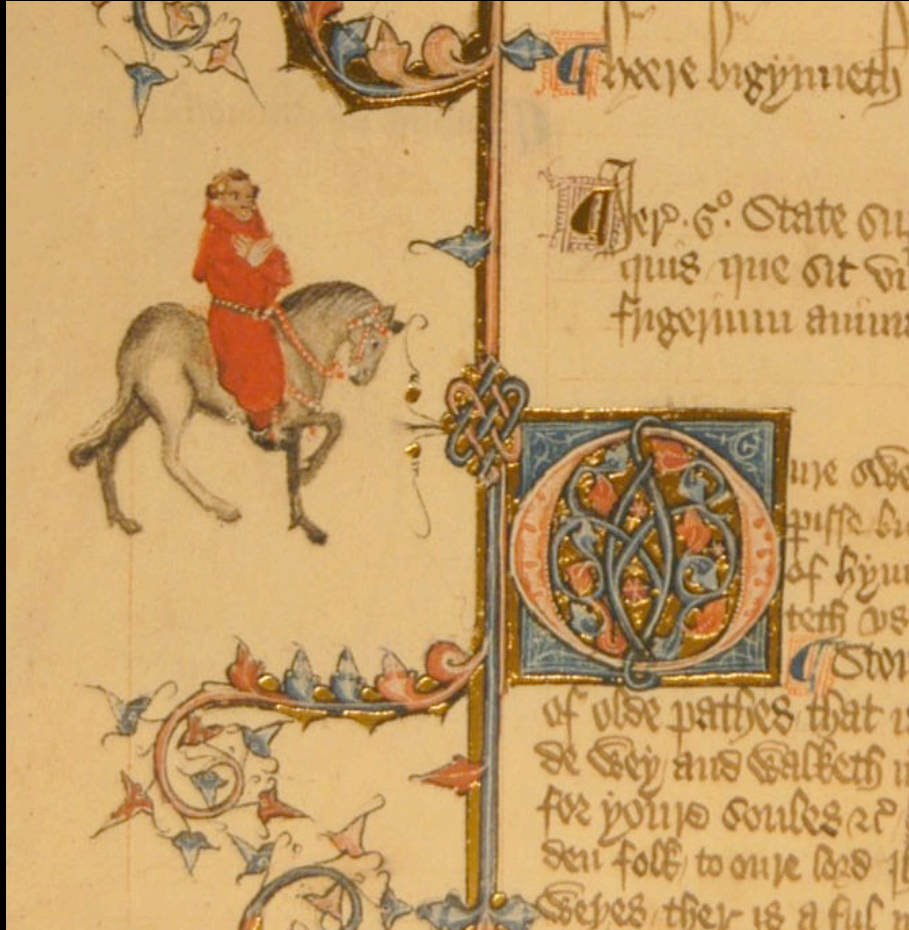 ¶ Heere bigynneth
¶ Jer. 6º. State su
quis que sit vi
frigerium anima
Oure swe
of hym
teth vs
¶ Ston
of olde pathes that is
de wey and walketh in
for youre soules ⁊c̉
den folk to oure lord
weyes ther is a ful